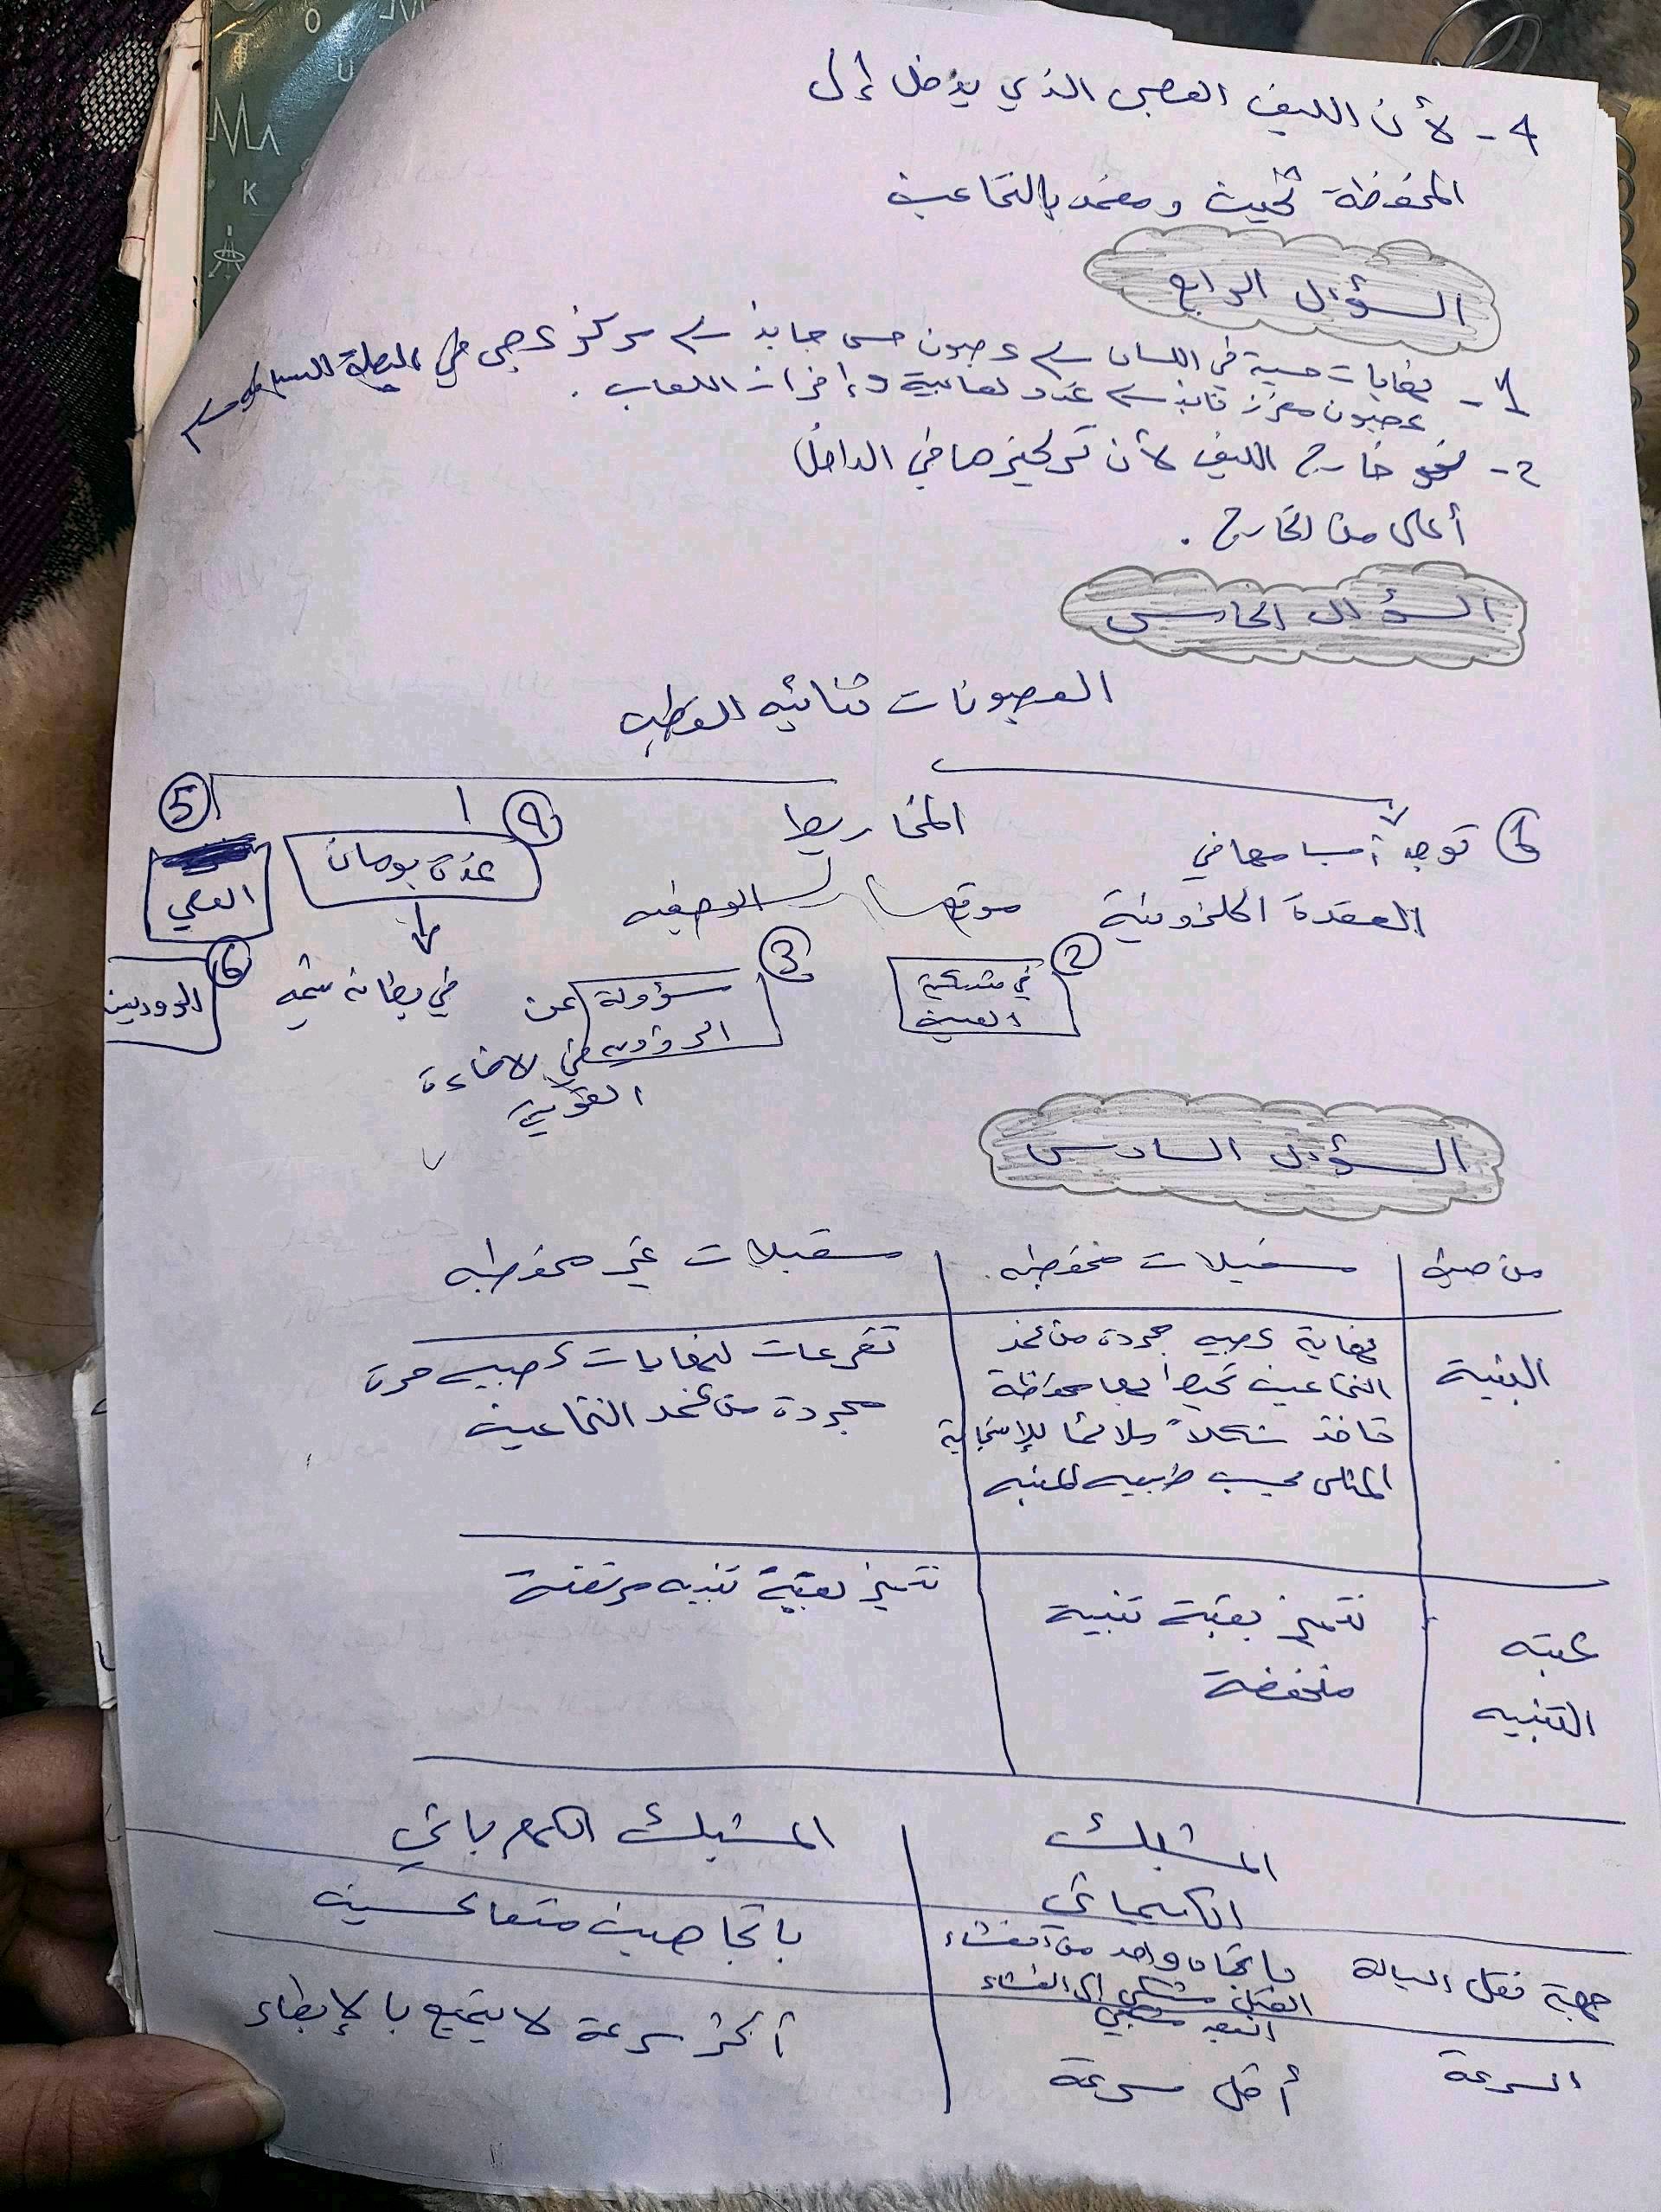 4 - لأن الليف العصبي الذي يدخل إلى
المحفظة ثخين و مغمد بالنخاعين
السؤال الرابع
1 - نهايات حسية في اللسان ← عصبون حسي جابذ ← مركز عصبي في البصلة السيسائية ←
عصبون مفرز نابذ ← غدد لعابية و إفراز اللعاب .
2 - نحو خارج الليف لأن تركيزها في الداخل
أعلى من الخارج .
السؤال الخامس
العصبونات ثنائية القطب
5
4
المخاريط
1 توجد أجسامها في
العصي
غدة بومان
موقع
الوصفيه
العقدة الحلزونية
6
الدوديين
في بطانة شمية
3
مسؤولة عن
الرؤية في الاضاءة
القوية
2
في شبكية
العين
السؤال السادس
من حيث
مستقبلات محفظية
مستقبلات غير محفظية
البنية
نهاية عصبيه مجردة من غمد
النخاعين تحيط بها محفظة
تأخذ شكلاً ملائماً للإستجابة
المثلى بحسب طبيعه المنبه
تفرعات لنهايات عصبيه حرة
مجردة من غمد النخاعين
عتبه
التنبيه
تتميز بعتبة تنبيه
منخفضة
تتميز بعتبة تنبيه مرتفعة
المشبك
الكيميائي
المشبك الكهربائي
جهة نقل السيالة
باتجاه واحد من الغشاء
القبل مشبكي إلى الغشاء
البعد مشبكي
باتجاهين متعاكسين
السرعة
أقل سرعة
أكثر سرعة لا يتمتع بالإبطاء